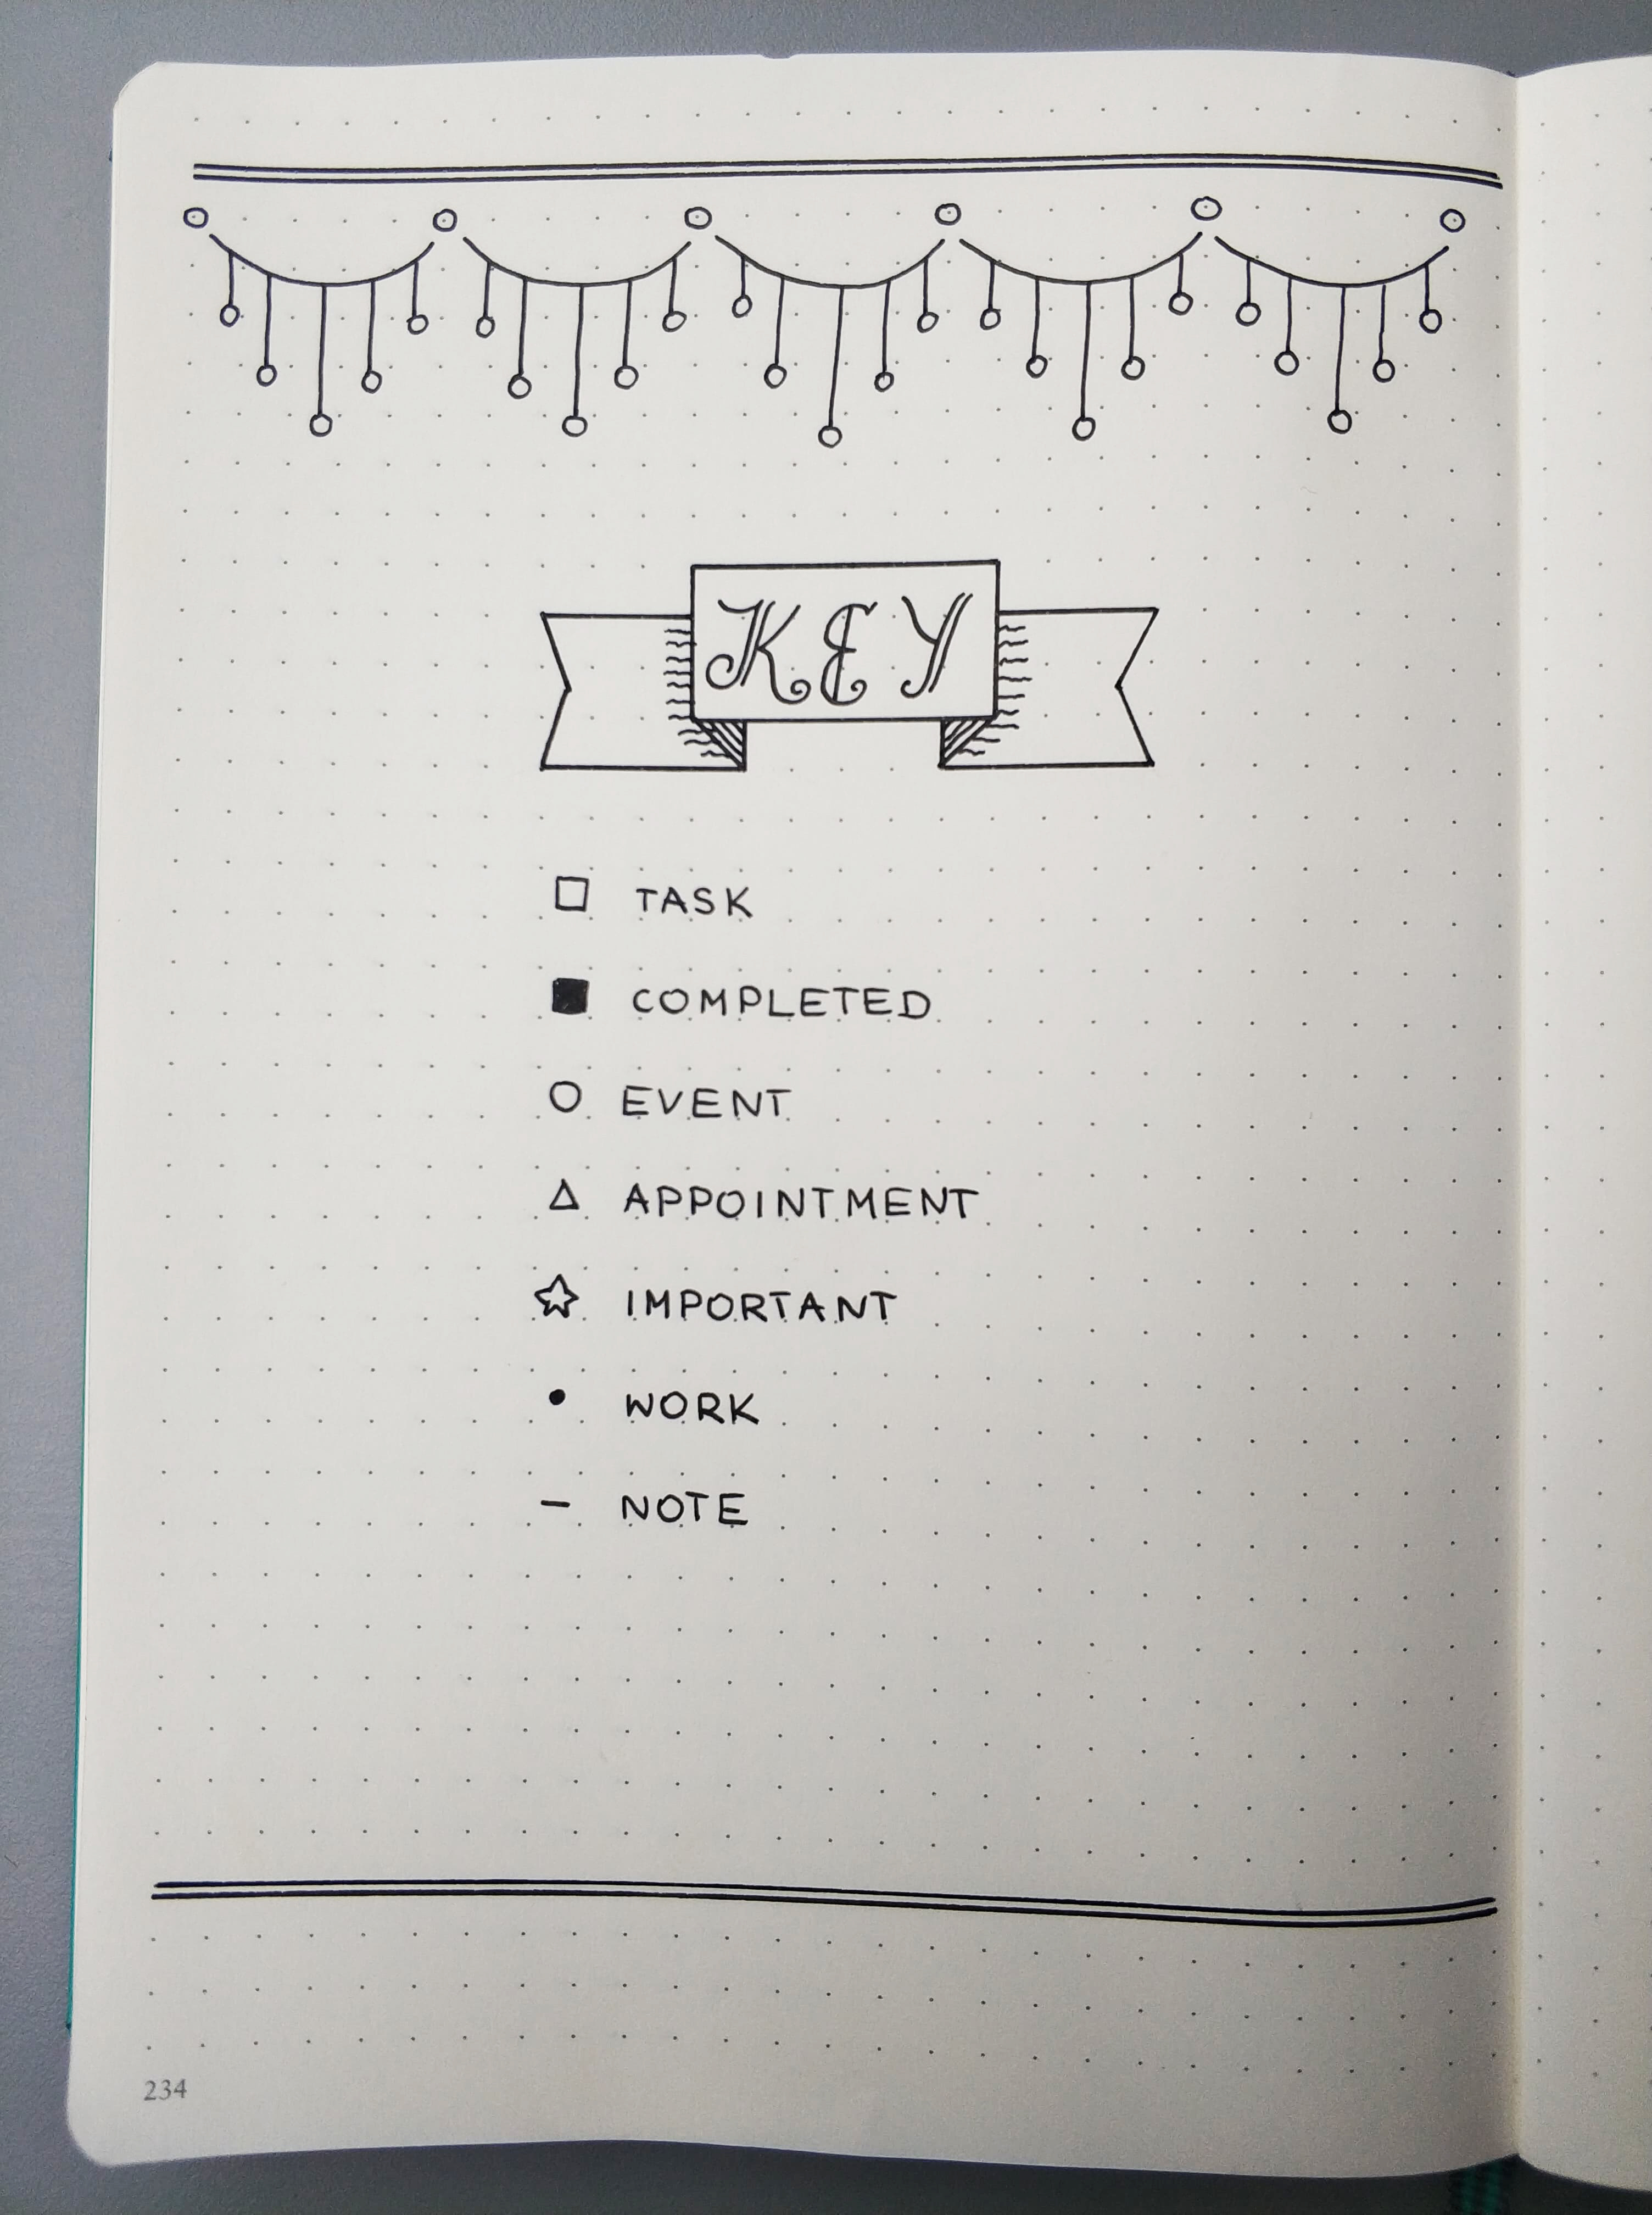 KEY
□ TASK
■ COMPLETED
○ EVENT
△ APPOINTMENT
☆ IMPORTANT
• WORK
– NOTE
234